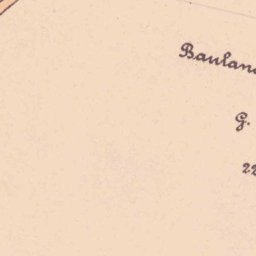 Bauland
G.
22